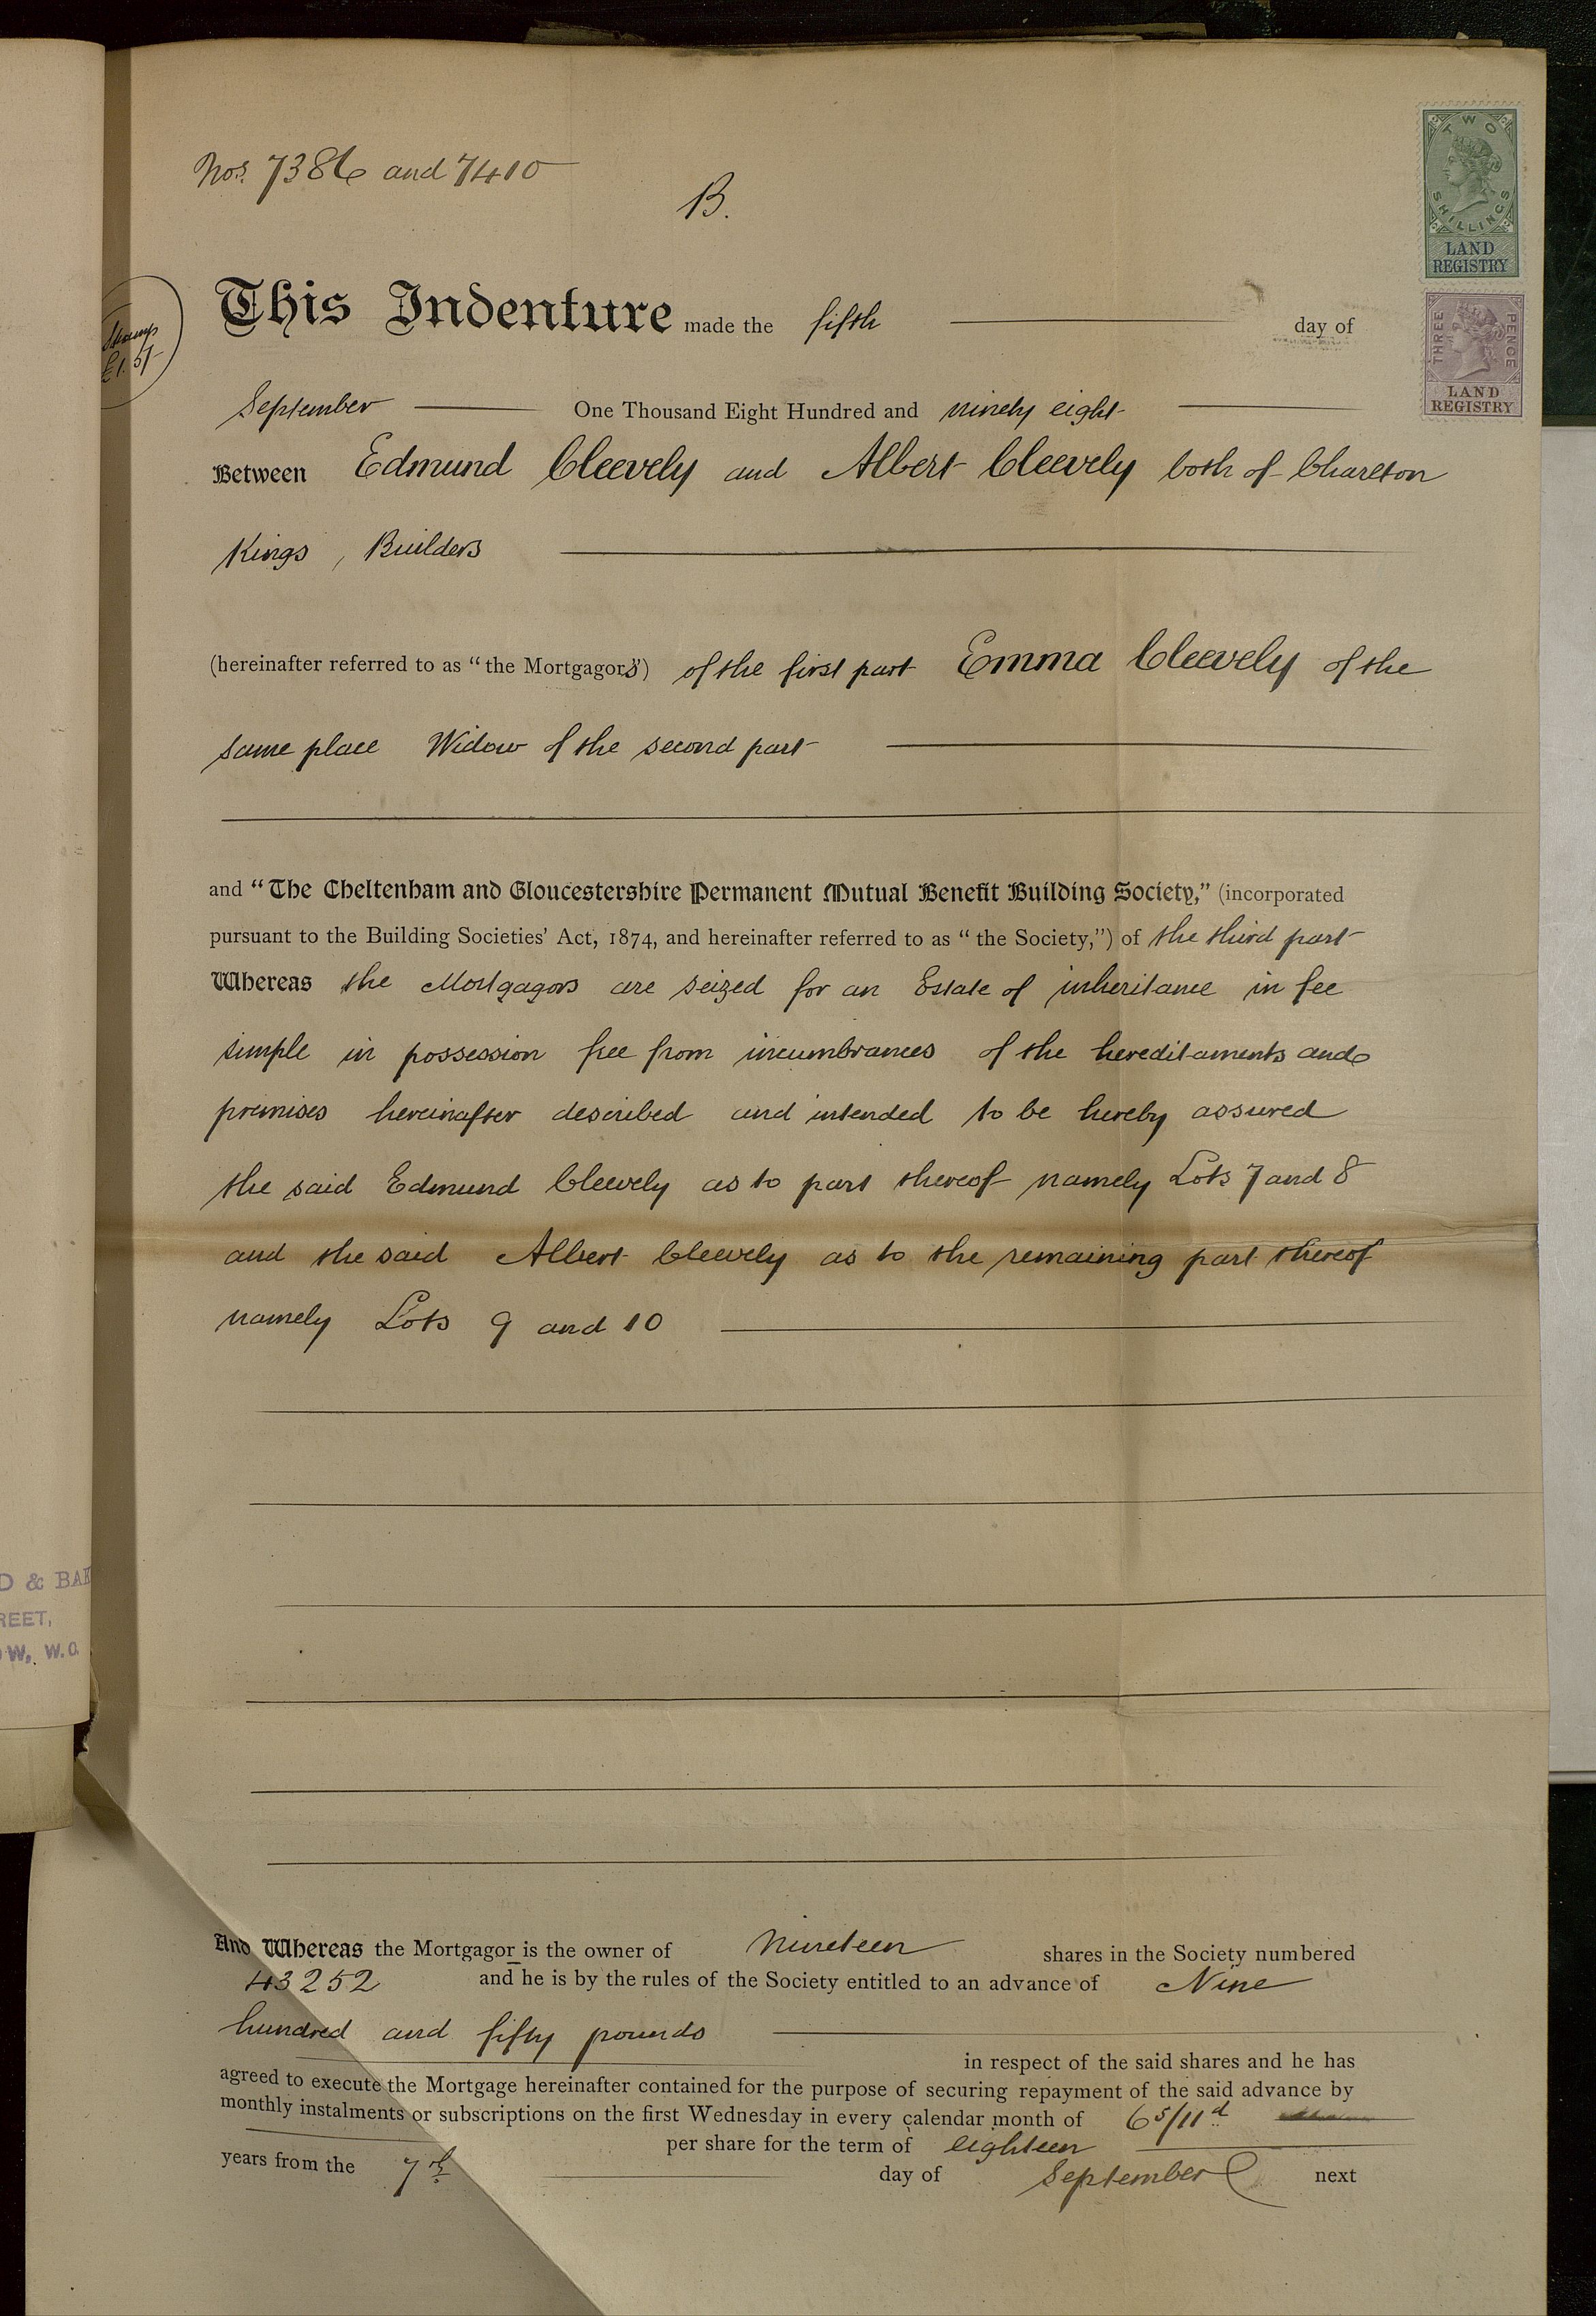 Nos. 7386 and 7410
B.
TWO SHILLINGS
LAND
REGISTRY
THREE PENCE
LAND
REGISTRY
Stamp
£1.5/-
This Indenture made the fifth day of
September One Thousand Eight Hundred and ninety eight
Between Edmund Cleevely and Albert Cleevely both of Charlton
Kings, Builders
(hereinafter referred to as "the Mortgagors") of the first part Emma Cleevely of the
same place Widow of the second part
and "The Cheltenham and Gloucestershire Permanent Mutual Benefit Building Society," (incorporated
pursuant to the Building Societies' Act, 1874, and hereinafter referred to as "the Society,") of the third part
Whereas the Mortgagors are seized for an Estate of inheritance in fee
simple in possession free from incumbrances of the hereditaments and
premises hereinafter described and intended to be hereby assured
the said Edmund Cleevely as to part thereof namely Lots 7 and 8
and the said Albert Cleevely as to the remaining part thereof
namely Lots 9 and 10
D & BAK
REET,
W, W.C.
And Whereas the Mortgagor is the owner of Nineteen shares in the Society numbered
43252 and he is by the rules of the Society entitled to an advance of Nine
hundred and fifty pounds
in respect of the said shares and he has
agreed to execute the Mortgage hereinafter contained for the purpose of securing repayment of the said advance by
monthly instalments or subscriptions on the first Wednesday in every calendar month of 6s/11d
per share for the term of eighteen
years from the 7th day of September next